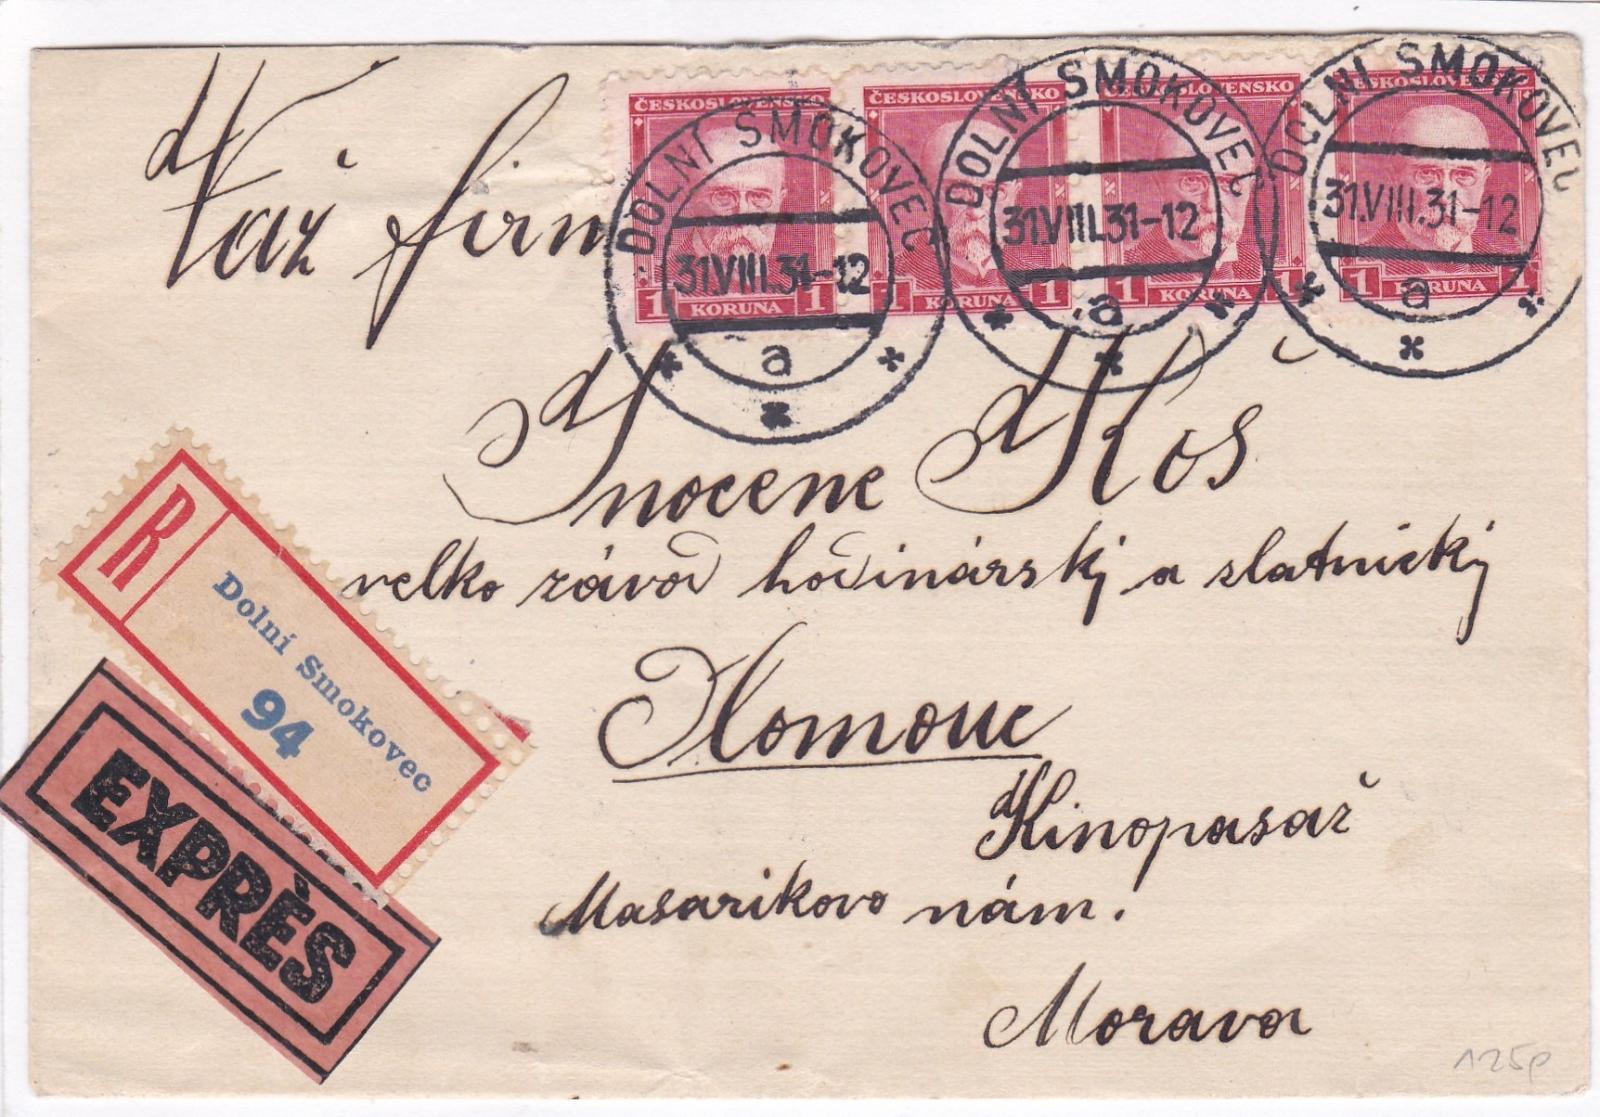 Váž firm
ČESKOSLOVENSKO
1 KORUNA 1
ČESKOSLOVENSKO
1 KORUNA 1
ČESKOSLOVENSKO
1 KORUNA 1
ČESKOSLOVENSKO
1 KORUNA 1
DOLNÍ SMOKOVEC
31.VIII.31-12
a
DOLNÍ SMOKOVEC
31.VIII.31-12
a
DOLNÍ SMOKOVEC
31.VIII.31-12
a
Inocenc Koš
velko závod hodinárský a zlatnický
Olomouc
Kinopasaž
Masarikovo nám.
Morava
R
Dolní Smokovec
94
EXPRÈS
125p